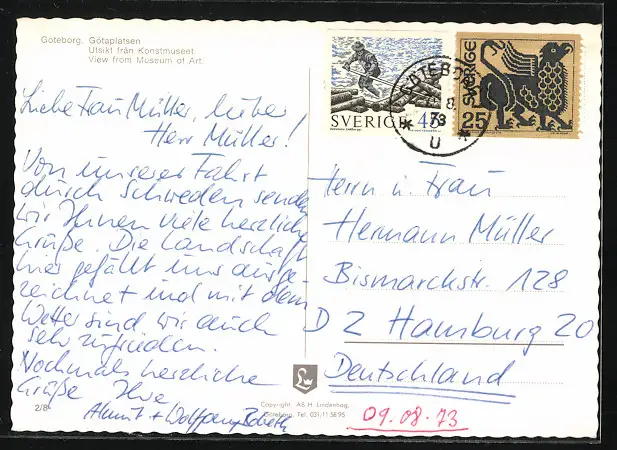 Göteborg. Götaplatsen
Utsikt från Konstmuseet
View from Museum of Art.
Liebe Frau Müller, lieber
Herr Müller!
Von unserer Fahrt
durch Schweden senden
wir Ihnen viele herzliche
Grüße. Die Landschaft
hier gefällt uns ausge-
zeichnet und mit dem
Wetter sind wir auch
sehr zufrieden.
Nochmals herzliche
Grüße Ihre
Almut + Wolfgang
2/8
SVERIGE 45
SVERIGE
25
GÖTEBORG
8
73
U
Herrn u. Frau
Hermann Müller
Bismarckstr. 128
D 2 Hamburg 20
Deutschland
Copyright. AB H. Lindenhag,
Göteborg. Tel. 031/11 58 95
09.08.73